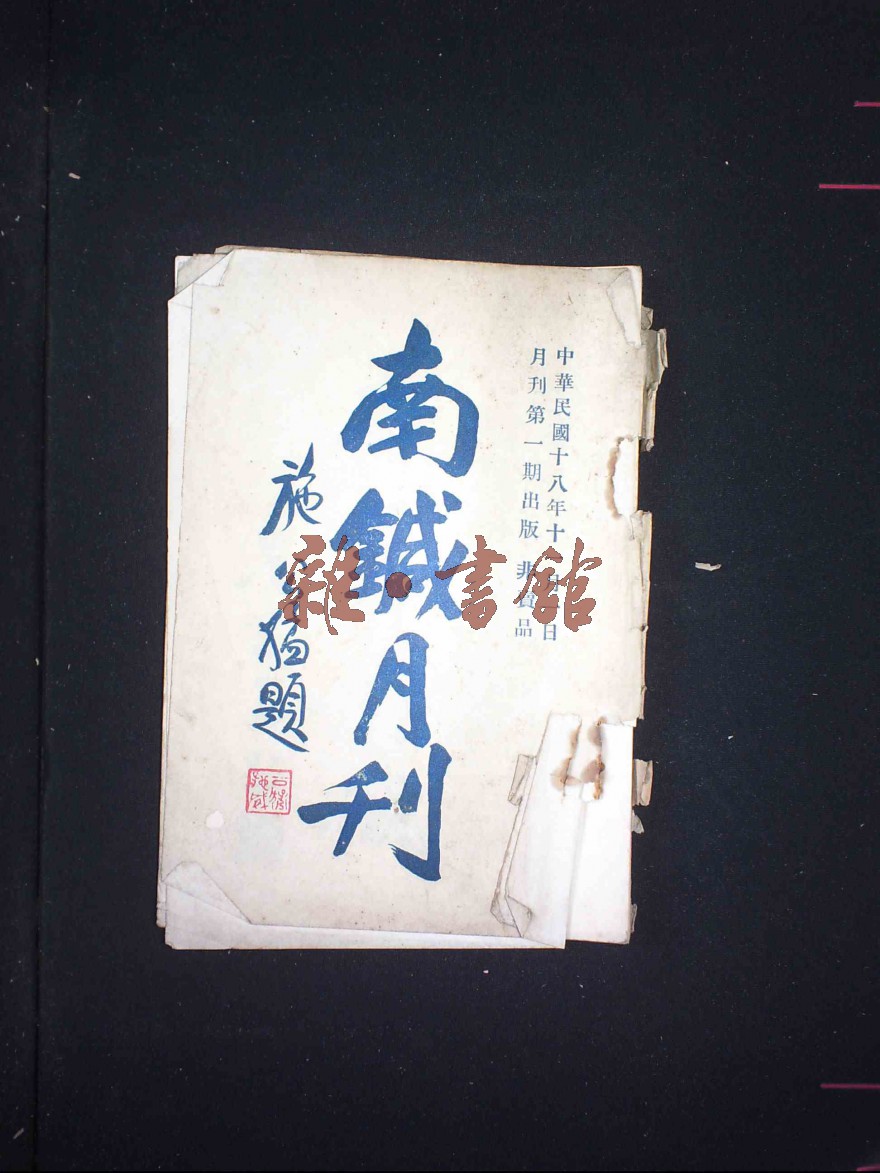 中華民國十八年十月一日
月刊第一期出版 非賣品
南鍼月刊
施公猛題
雜·書館